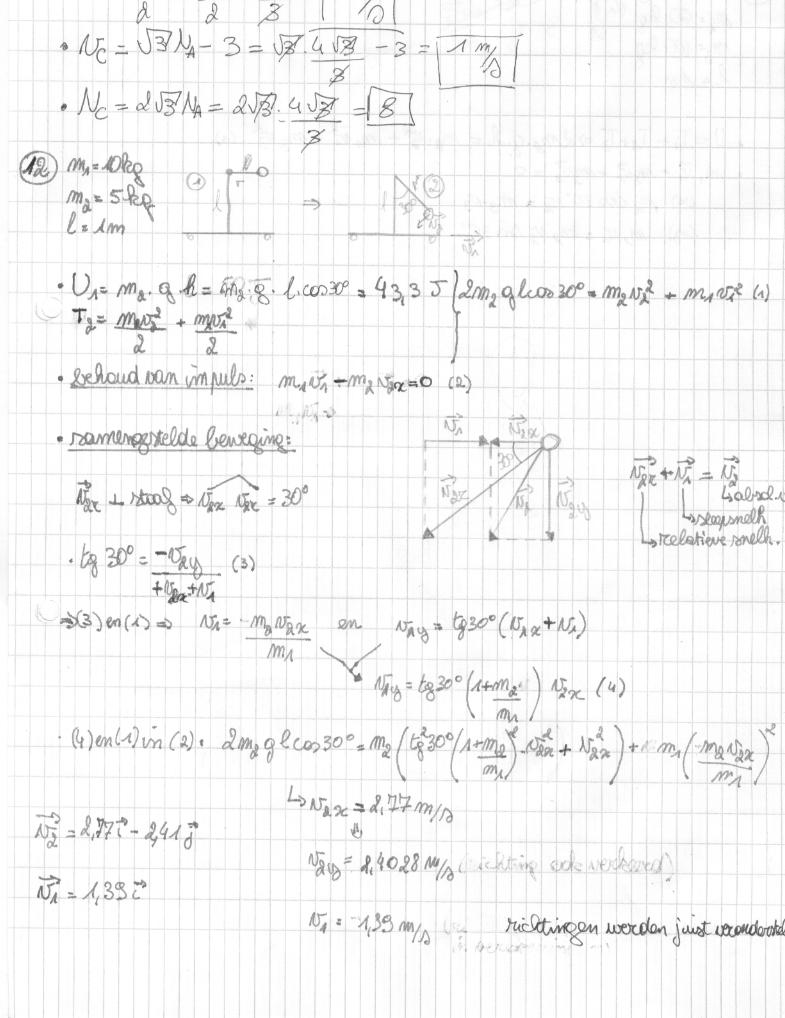 2 2 3
• v_C = √3 v_A - 3 = √3 · 4√3/3 - 3 = 1 m/s
• v_C = 2√3 v_A = 2√3 · 4√3/3 = 8
12 m₁ = 10kg
m₂ = 5 kg
l = 1m
1 l r ⇒ l r 30° 2 v₁
• U₁ = m₂ · g · h = m₂ · g · l · cos30° = 43,3 J } 2m₂ g l cos 30° = m₂v₂² + m₁v₁² (1)
T₂ = m₂v₂²/2 + m₁v₁²/2
• behoud van impuls: m₁v₁ - m₂v₂x = 0 (2)
• samengestelde beweging:
v₁ v₂x 30° v₂r v₂ v₂y
v₂r + v₁ = v₂
↳ absol.
↳ sleepsnelh
↳ relatieve snelh.
v₂r ⊥ staaf ⇒ v₂x v₂r = 30°
• tg 30° = -v₂y/+v₂x+v₁ (3)
⇒ (3) en (1) ⇒ v₁ = -m₂v₂x/m₁ en v₂y = tg30° (v₂x + v₁)
v₂y = tg 30° (1+m₂/m₁) v₂x (4)
• (4) en (1) in (2) • 2m₂ g l cos 30° = m₂ (tg²30° (1+m₂/m₁)² · v₂x² + v₂x²) + m₁ (-m₂v₂x/m₁)²
↳ v₂x = 2,77 m/s
⇓
v₂ = 2,77 i - 2,41 j
v₂y = 2,4028 m/s (richting ook verkeerd)
v₁ = 1,39 i
v₁ = -1,39 m/s richtingen werden juist veronderstel